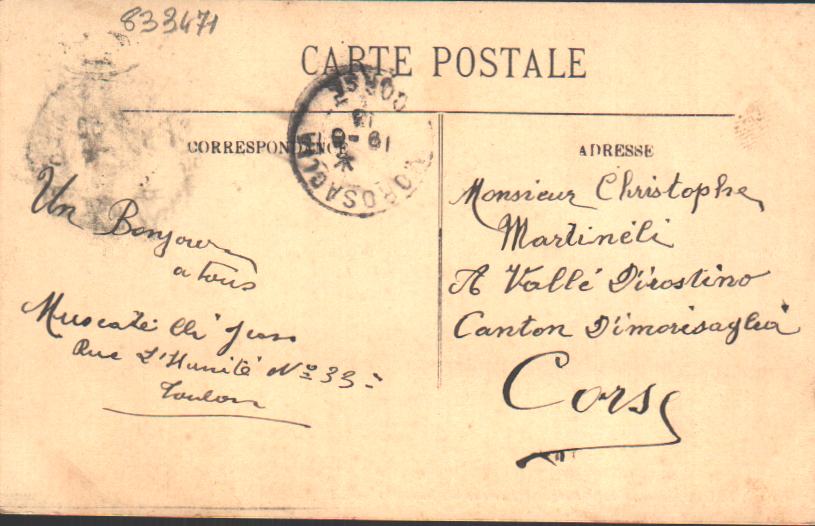 833471
CARTE POSTALE
CORRESPONDANCE
MOROSAGLIA CORSE
ADRESSE
Un Bonjour
a tous
Muscatelli Jean
Rue L'Hunité No 33
Toulon
Monsieur Christophe
Martinéli
A Vallé Dirostino
Canton Dimorisaglia
Corse